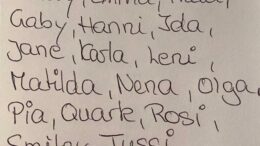 Gaby, Hanni, Ida,
Jane, Karla, Leni,
Matilda, Nena, Olga,
Pia, Quarte, Rosi,